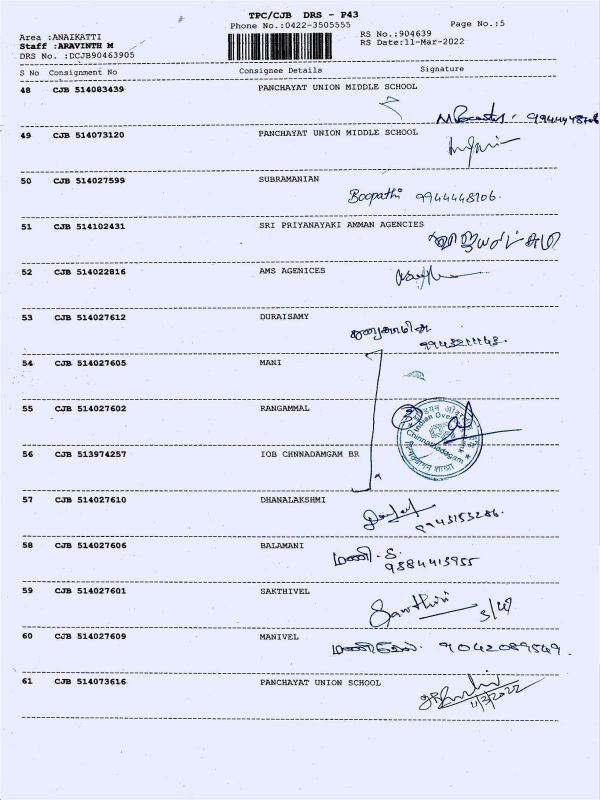 TPC/CJB DRS - P43
Phone No.:0422-3505555
Page No.:5
Area :ANAIKATTI
Staff :ARAVINTH M
DRS No. :DCJB90463905
RS No.:904639
RS Date:11-Mar-2022
S No Consignment No Consignee Details Signature
48 CJB 514083439 PANCHAYAT UNION MIDDLE SCHOOL
49 CJB 514073120 PANCHAYAT UNION MIDDLE SCHOOL
50 CJB 514027599 SUBRAMANIAN
Boopathi 9944448706.
51 CJB 514102431 SRI PRIYANAYAKI AMMAN AGENCIES
52 CJB 514022816 AMS AGENICES
53 CJB 514027612 DURAISAMY
54 CJB 514027605 MANI
55 CJB 514027602 RANGAMMAL
56 CJB 513974257 IOB CHNNADAMGAM BR
Chinnadadagam
57 CJB 514027610 DHANALAKSHMI
9943153286.
58 CJB 514027606 BALAMANI
மணி.
9384413955
59 CJB 514027601 SAKTHIVEL
60 CJB 514027609 MANIVEL
மணிவேல். 9042089549.
61 CJB 514073616 PANCHAYAT UNION SCHOOL
11/3/2022